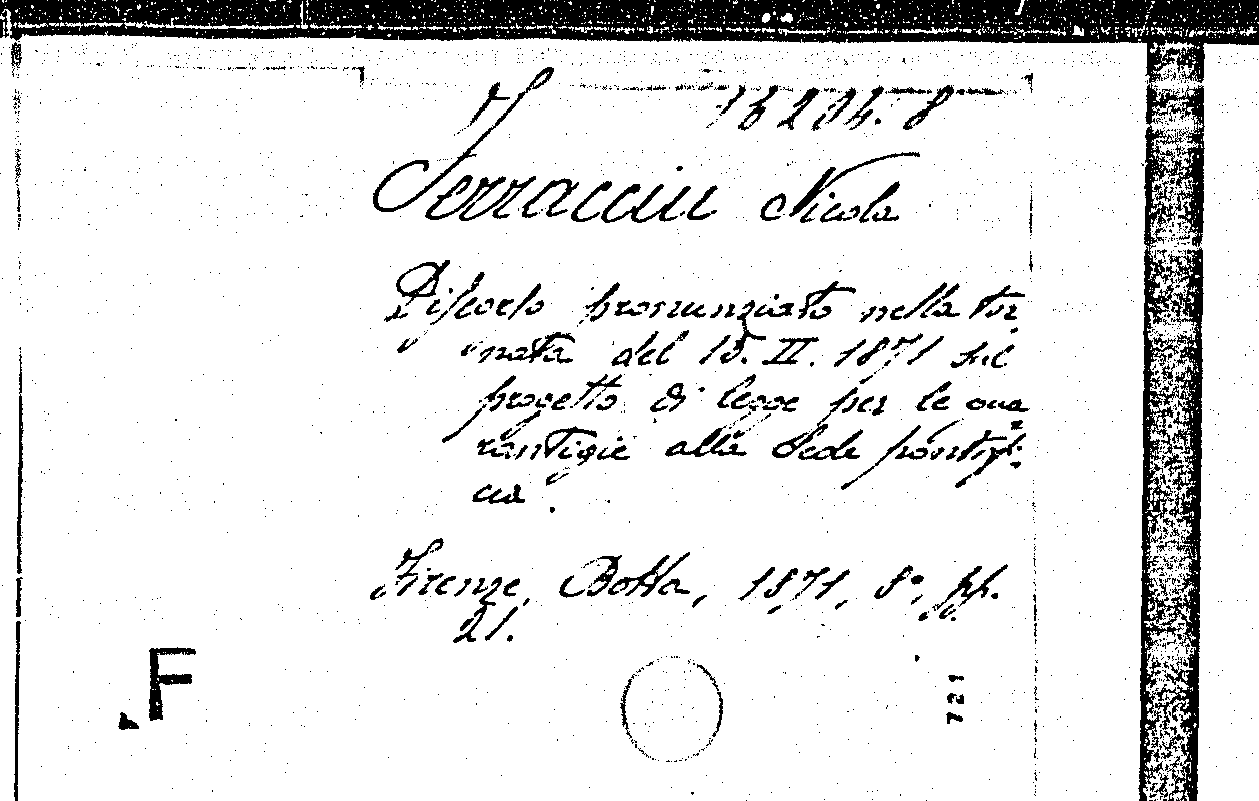 Ferracciu Nicola
Discorso pronunziato nella tor-
nata del 15. II. 1871 sul
progetto di legge per le gua-
rantigie alla Sede pontifi-
cia.
Firenze, Botta, 1871, 8°, pp.
21.
F
721